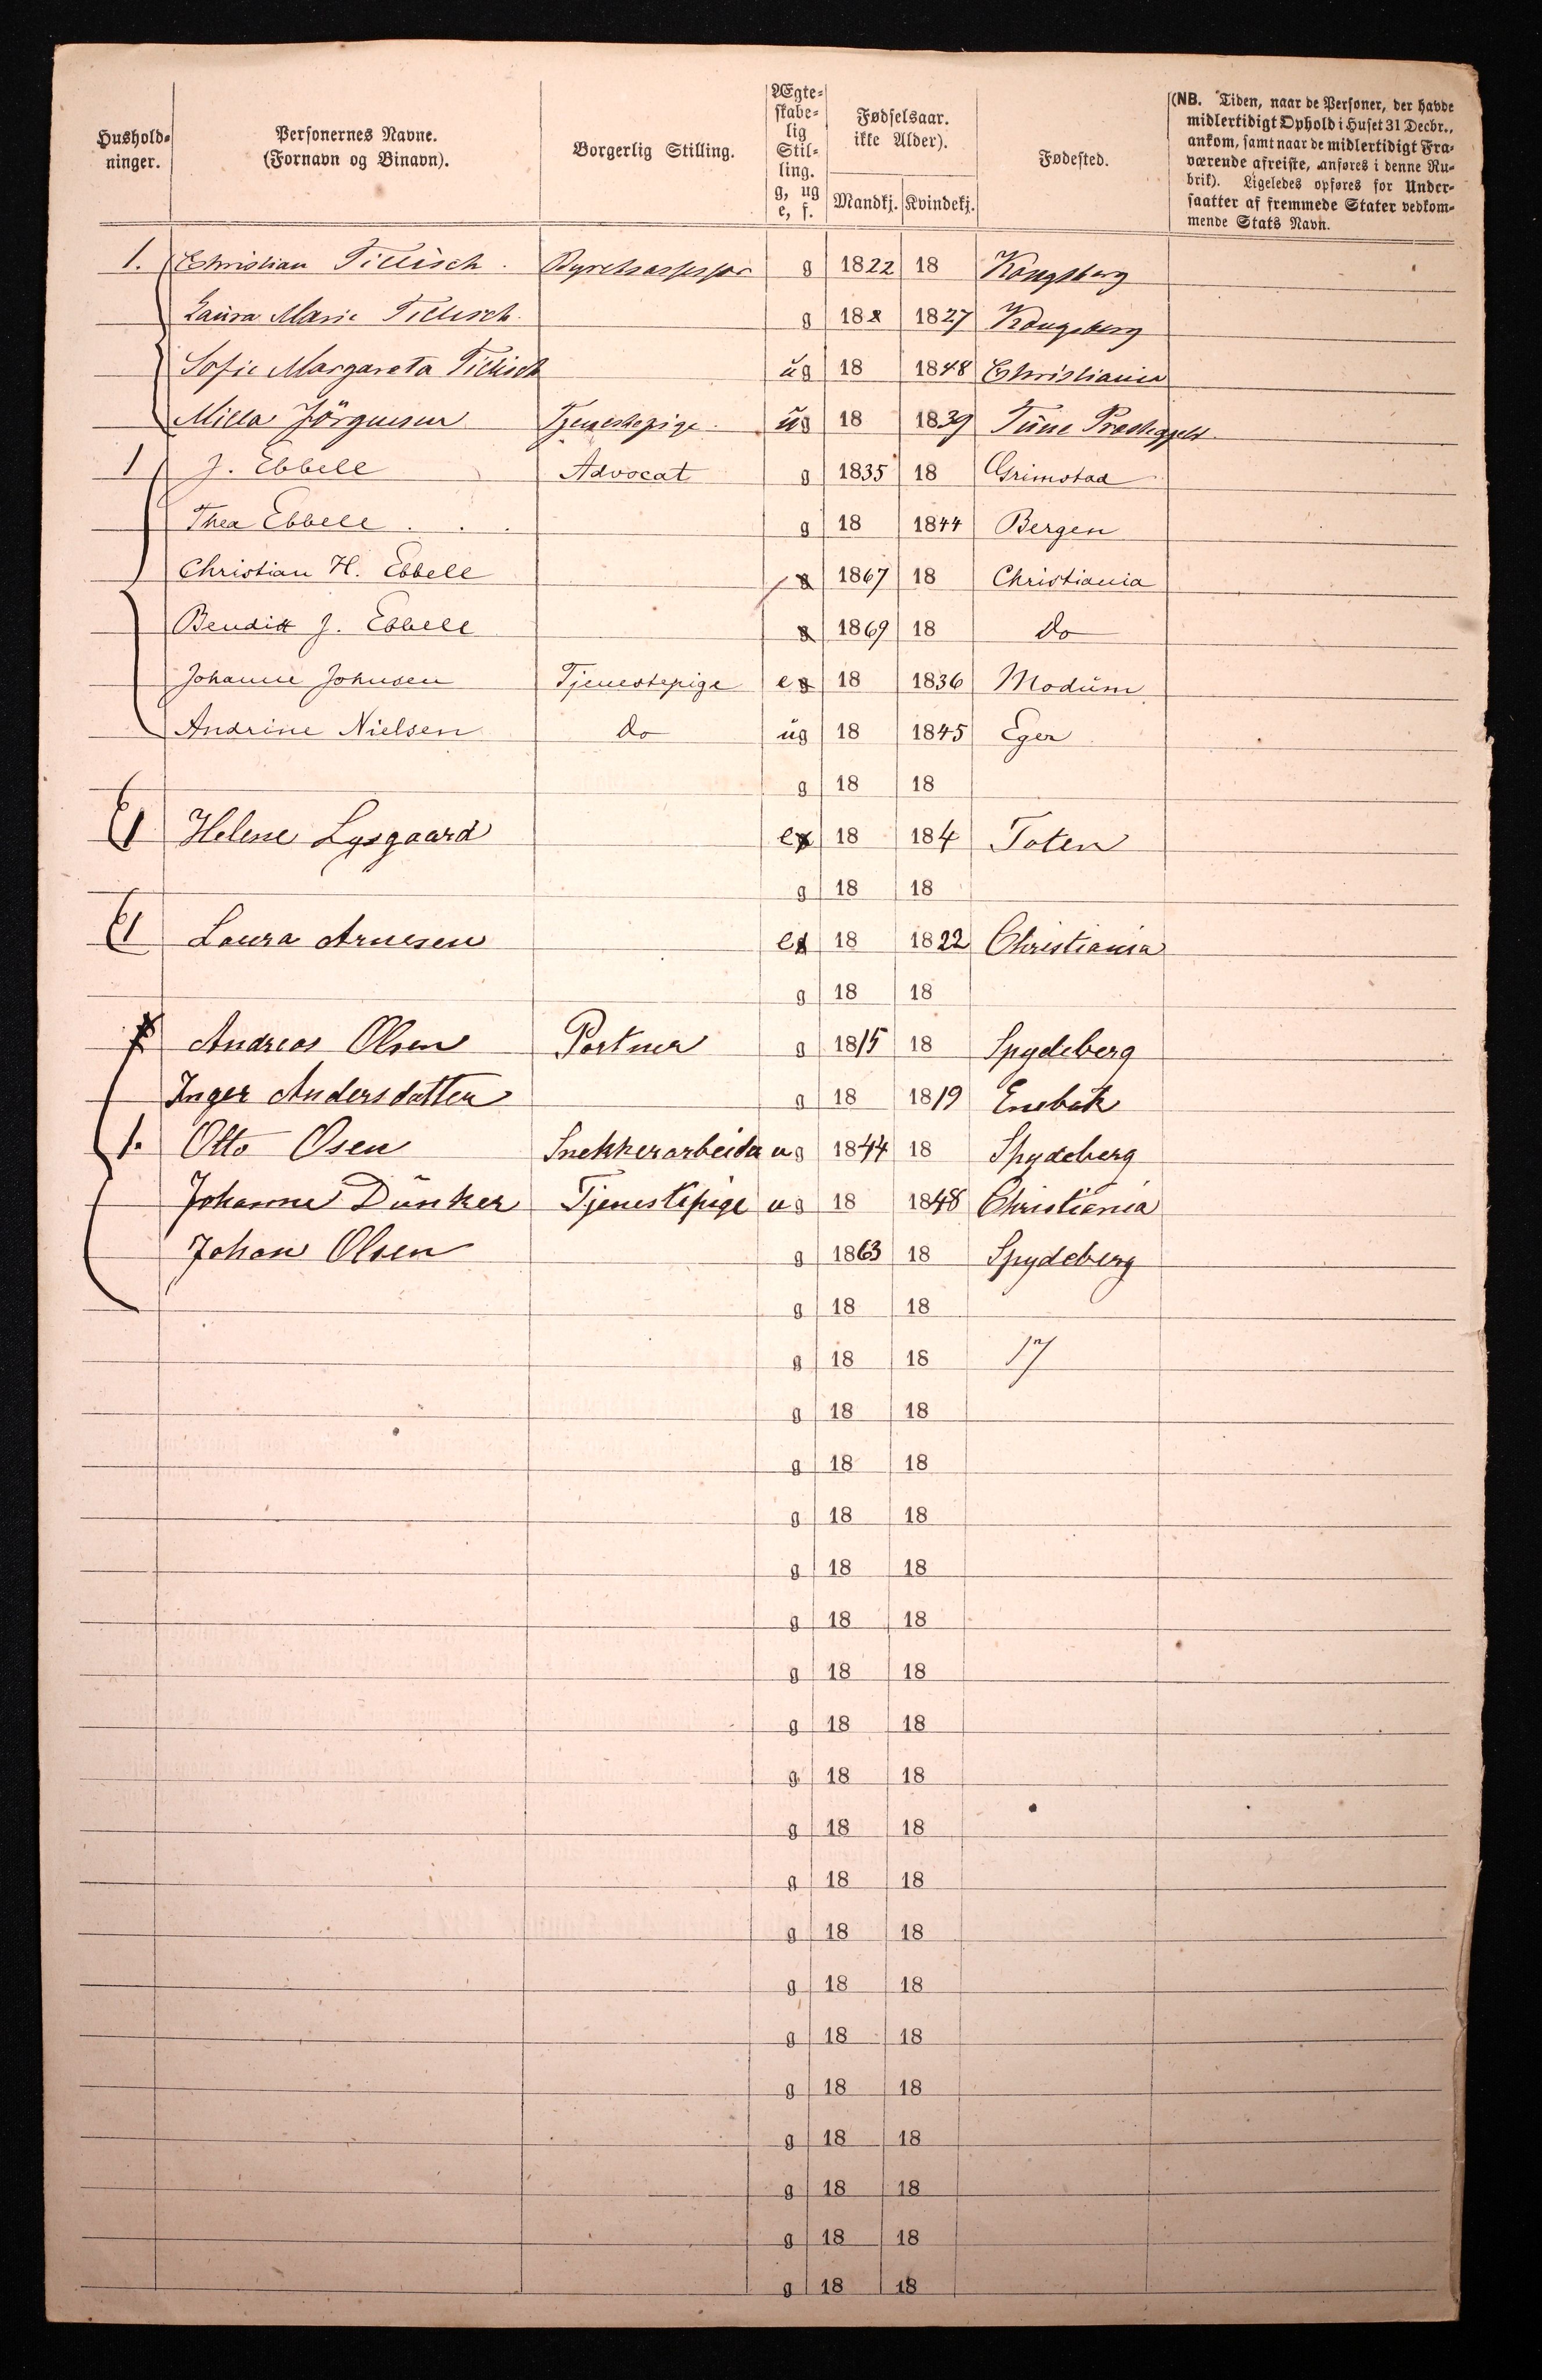 Hushold-
ninger.
Personernes Navne.
(Fornavn og Binavn).
Borgerlig Stilling.
Ægte-
skabe-
lig
Stil-
ling.
g, ug
e, f.
Fødselsaar.
ikke Alder).
Mandkj. Kvindekj.
Fødested.
(NB. Tiden, naar de Personer, der havde
midlertidigt Ophold i Huset 31 Decbr.,
ankom, samt naar de midlertidigt Fra-
værende afreiste, anføres i denne Ru-
brik). Ligeledes opføres for Under-
saatter af fremmede Stater vedkom-
mende Stats Navn.
1. Christian Tillisch. Byretsassessor g 1822 18 Kongsberg
Laura Marie Tillisch. g 18 1827 Kongsberg
Sofie Margareta Tillisch ug 18 1848 Christiania
Milla Jörgensen Tjenestepige. ug 18 1839 Tüne Præstegjeld.
1 J. Ebbell Advocat g 1835 18 Grimstad
Thea Ebbell . . . g 18 1844 Bergen
Christian H. Ebbell g 1867 18 Christiania
Benditt J. Ebbell g 1869 18 do
Johanne Johnsen Tjenestepige e g 18 1836 Modüm
Andrine Nielsen do üg 18 1845 Eger
g 18 18
1 Helene Lysgaard e g 18 184 Toten
g 18 18
1 Laura Arnesen e g 18 1822 Christiania
g 18 18
Andreas Olsen Portner g 1815 18 Spydeberg
Inger Andersdatter g 18 1819 Enebak
1. Otto Osen Snekkerarbeider ug 1844 18 Spydeberg
Johanne Dünker Tjenestepige ug 18 1848 Christiania
Johan Olsen g 1863 18 Spydeberg
g 18 18
g 18 18 17
g 18 18
g 18 18
g 18 18
g 18 18
g 18 18
g 18 18
g 18 18
g 18 18
g 18 18
g 18 18
g 18 18
g 18 18
g 18 18
g 18 18
g 18 18
g 18 18
g 18 18
g 18 18